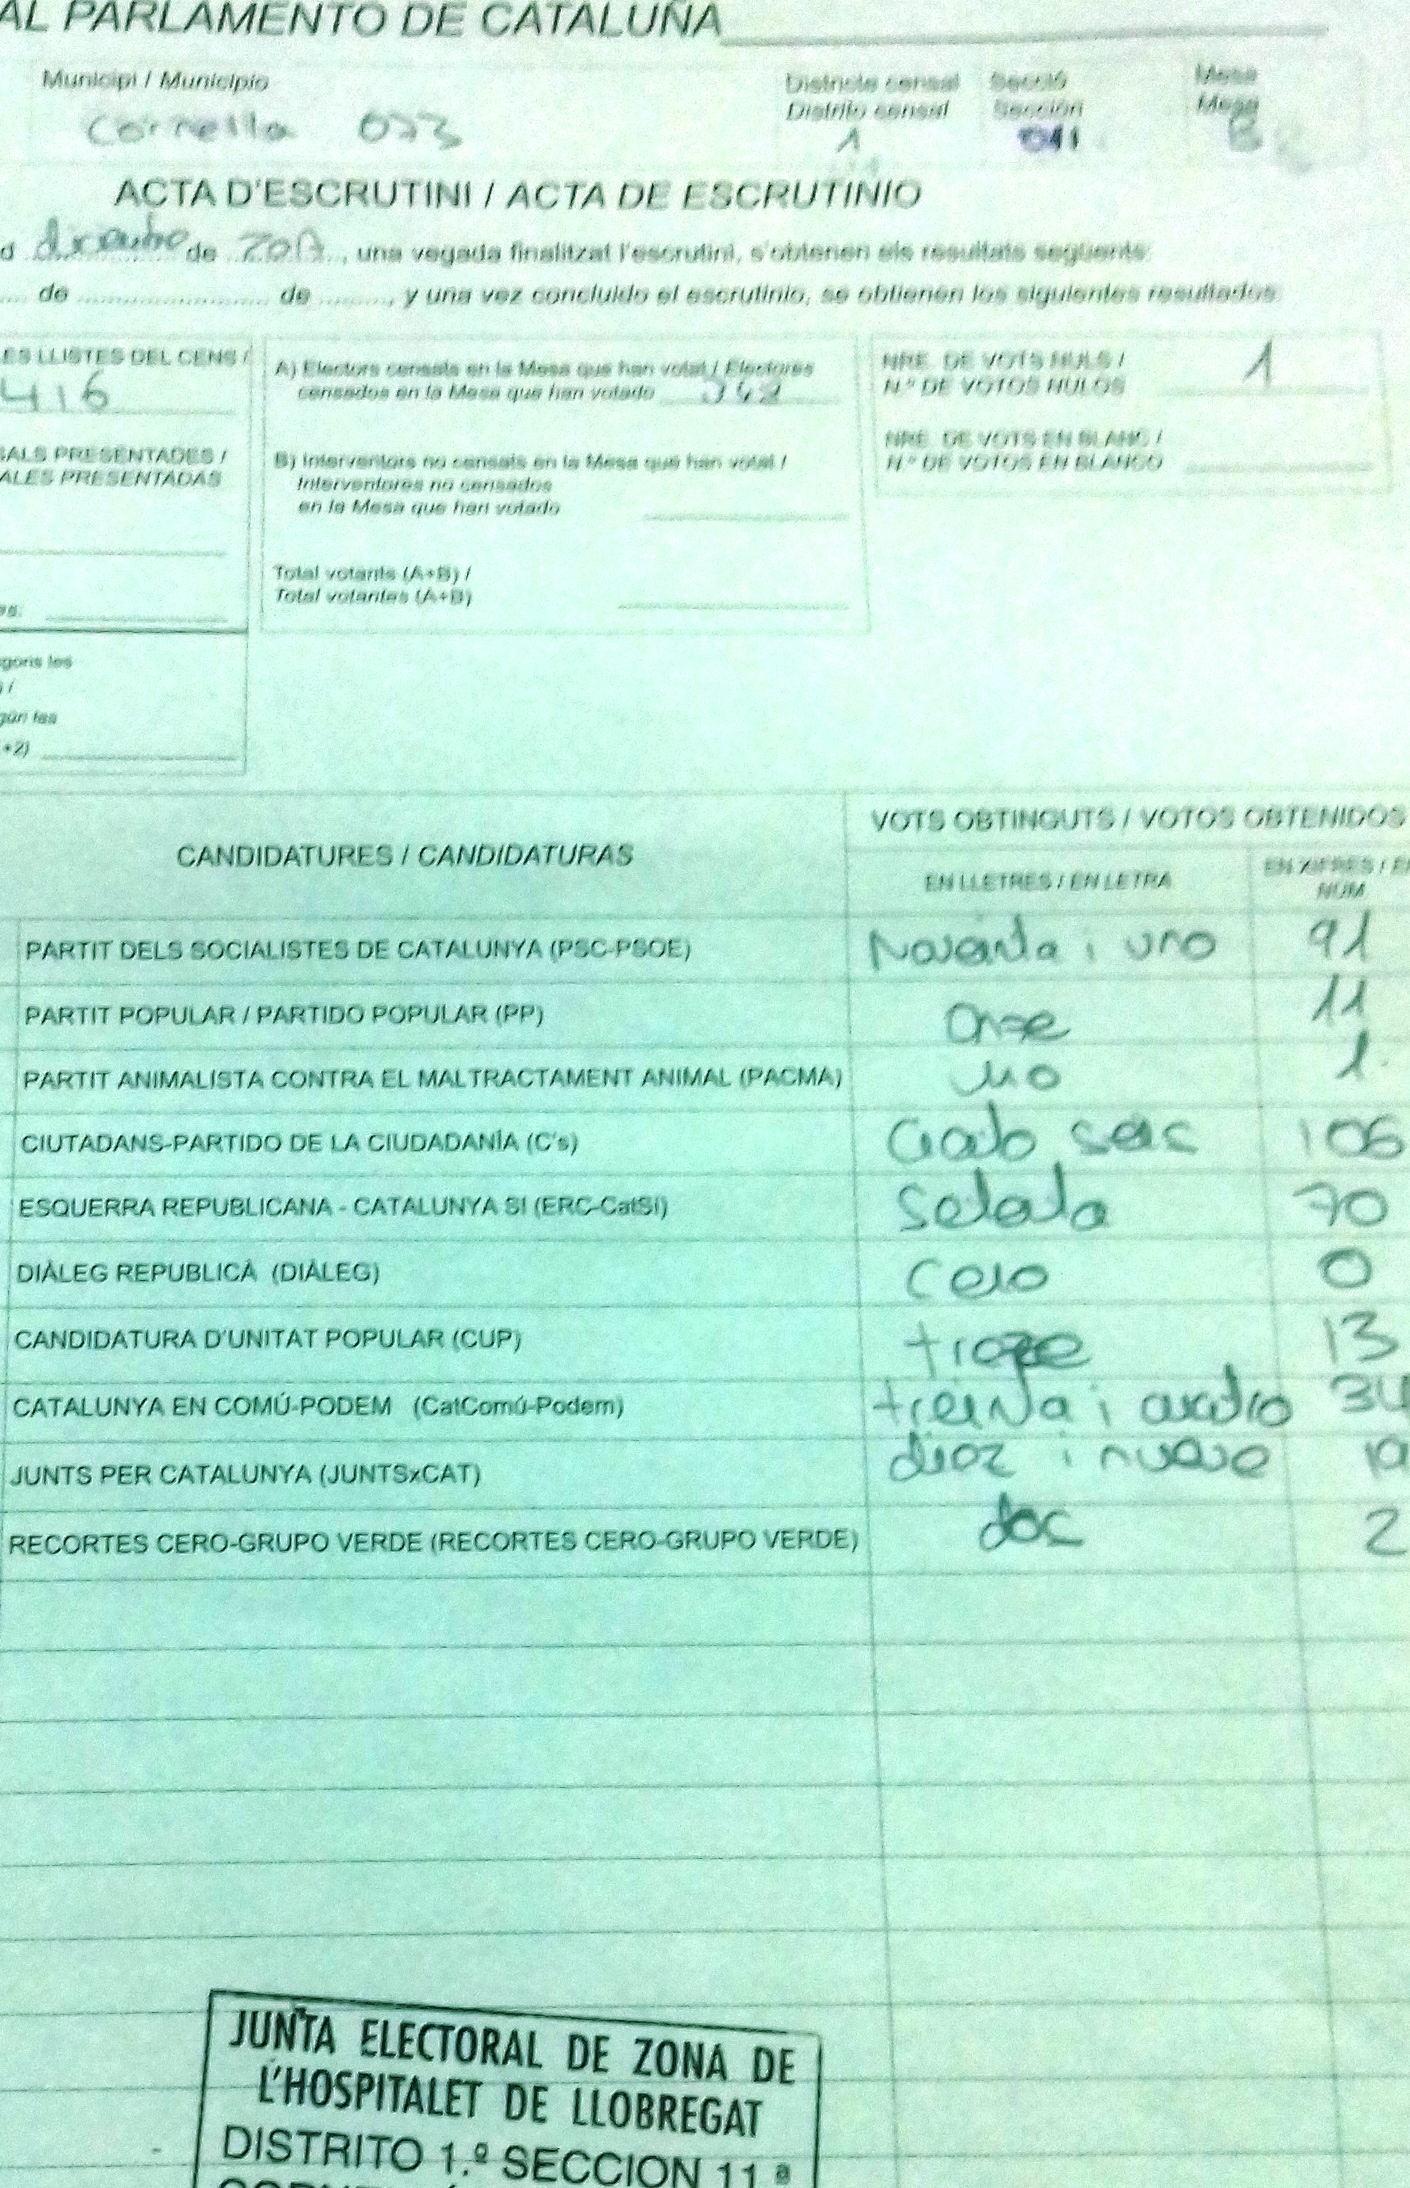 AL PARLAMENTO DE CATALUÑA
Municipi / Municipio
Districte censal
Distrito censal
Secció
Sección
Mesa
Mesa
Cornella 073
1
011
B
ACTA D'ESCRUTINI / ACTA DE ESCRUTINIO
d diciembre de 2017, una vegada finalitzat l'escrutini, s'obtenen els resultats següents:
de de , y una vez concluido el escrutinio, se obtienen los siguientes resultados:
ES LLISTES DEL CENS /
416
ALS PRESENTADES /
ALES PRESENTADAS
es:
gons les
/
gún las
+2)
A) Electors censats en la Mesa que han votat / Electores
censados en la Mesa que han votado
B) Interventors no censats en la Mesa que han votat /
Interventores no censados
en la Mesa que han votado
Total votants (A+B) /
Total votantes (A+B)
NRE. DE VOTS NULS /
N.º DE VOTOS NULOS 1
NRE. DE VOTS EN BLANC /
N.º DE VOTOS EN BLANCO
CANDIDATURES / CANDIDATURAS
VOTS OBTINGUTS / VOTOS OBTENIDOS
EN LLETRES / EN LETRA
EN XIFRES / E
NÚM
PARTIT DELS SOCIALISTES DE CATALUNYA (PSC-PSOE) Noventa i uno 91
PARTIT POPULAR / PARTIDO POPULAR (PP) onze 11
PARTIT ANIMALISTA CONTRA EL MALTRACTAMENT ANIMAL (PACMA) uno 1.
CIUTADANS-PARTIDO DE LA CIUDADANÍA (C's) Ciento seis 106
ESQUERRA REPUBLICANA - CATALUNYA SI (ERC-CatSí) Setenta 70
DIÀLEG REPUBLICÀ (DIÀLEG) Cero 0
CANDIDATURA D'UNITAT POPULAR (CUP) treze 13
CATALUNYA EN COMÚ-PODEM (CatComú-Podem) treinta i cuatro 34
JUNTS PER CATALUNYA (JUNTSxCAT) diez i nueve 19
RECORTES CERO-GRUPO VERDE (RECORTES CERO-GRUPO VERDE) dos 2
JUNTA ELECTORAL DE ZONA DE
L'HOSPITALET DE LLOBREGAT
DISTRITO 1.º SECCION 11.ª